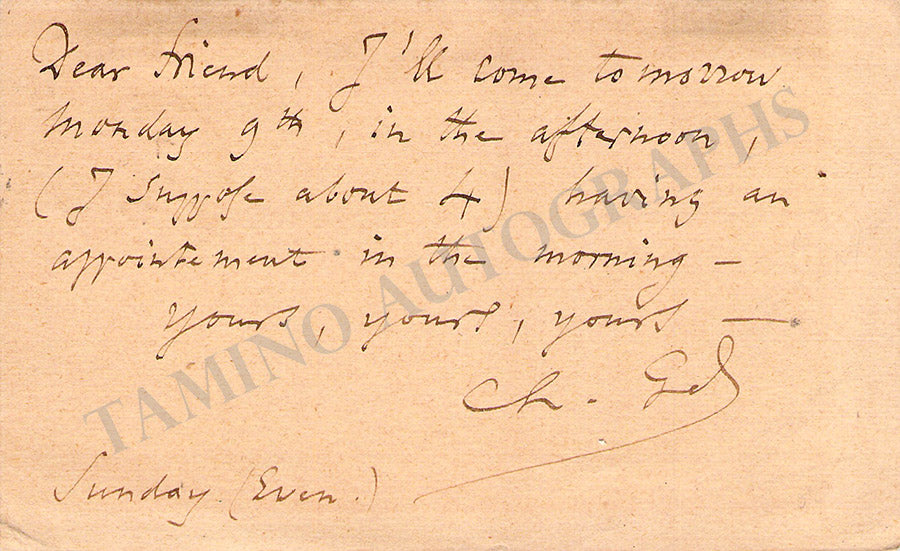 Dear friend, I'll come tomorrow
monday 9th, in the afternoon,
(I suppose about 4) having an
appointement in the morning —
yours, yours, yours —
Ch. Gd
Sunday. (Even.)
TAMINO AUTOGRAPHS